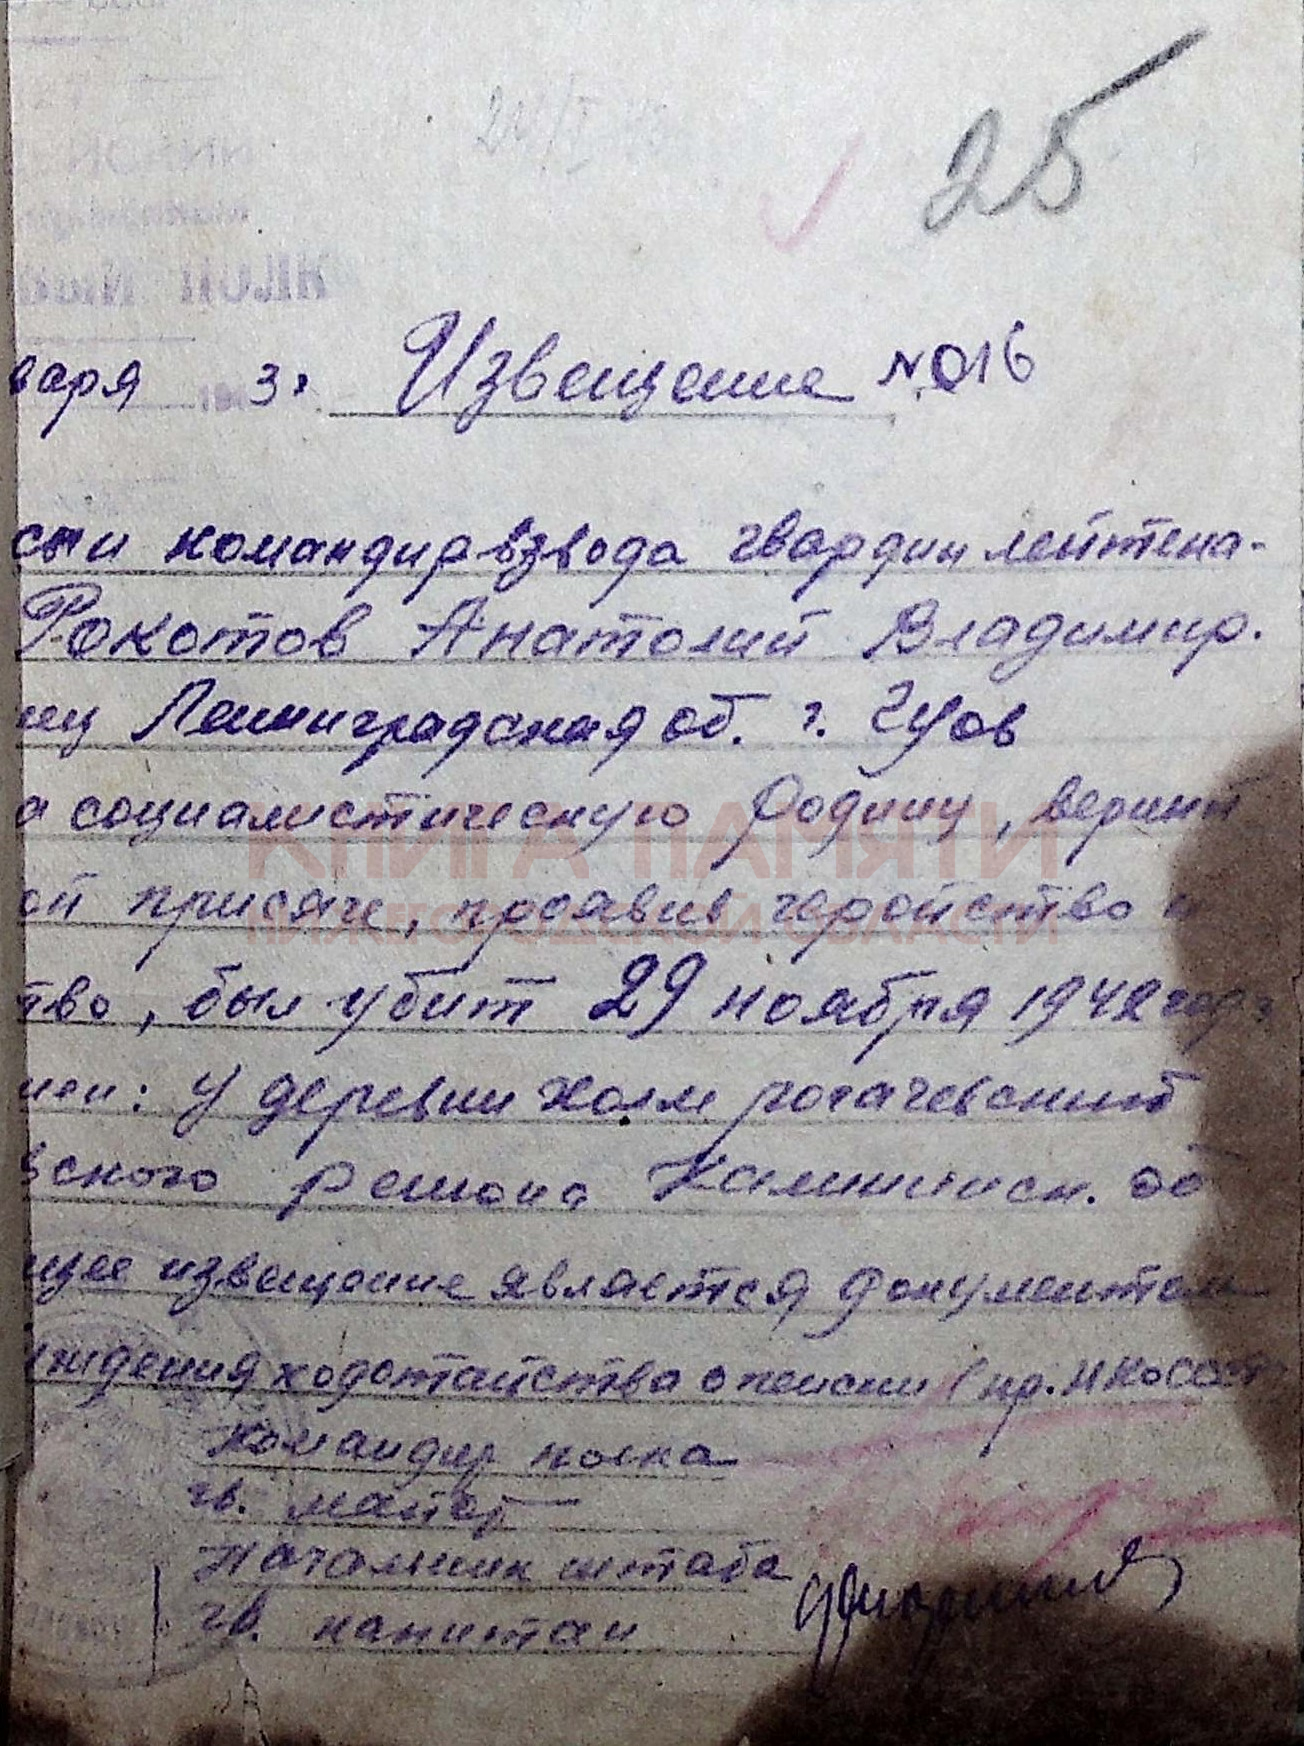 25
варя 3г Извещение №016
сти командир взвода гвардии лейтена-
Рокотов Анатолий Владимир.
нец Ленинградская об. г. Гдов
а социалистическую Родину, верный
ой присяге, проявив геройство и
тво, был убит 29 ноября 1942 года
нен: у деревни Холм рогачевский
вского рейона Калининск. об
щее извещение является документом
уждения ходотайства о пенсии (пр. НКОСССР
Командир полка
гв. майор
Начальник штаба
гв. капитан
КНИГА ПАМЯТИ
НИЖЕГОРОДСКОЙ ОБЛАСТИ